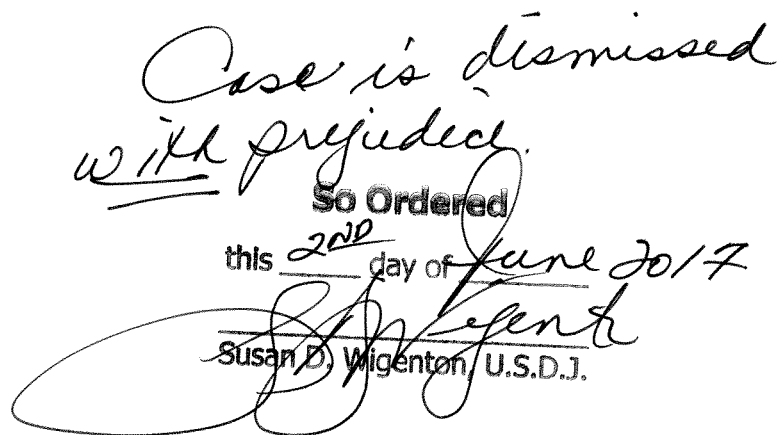 Case is dismissed
with prejudice.
So Ordered
this 2ND day of June 2017
Susan D. Wigenton, U.S.D.J.